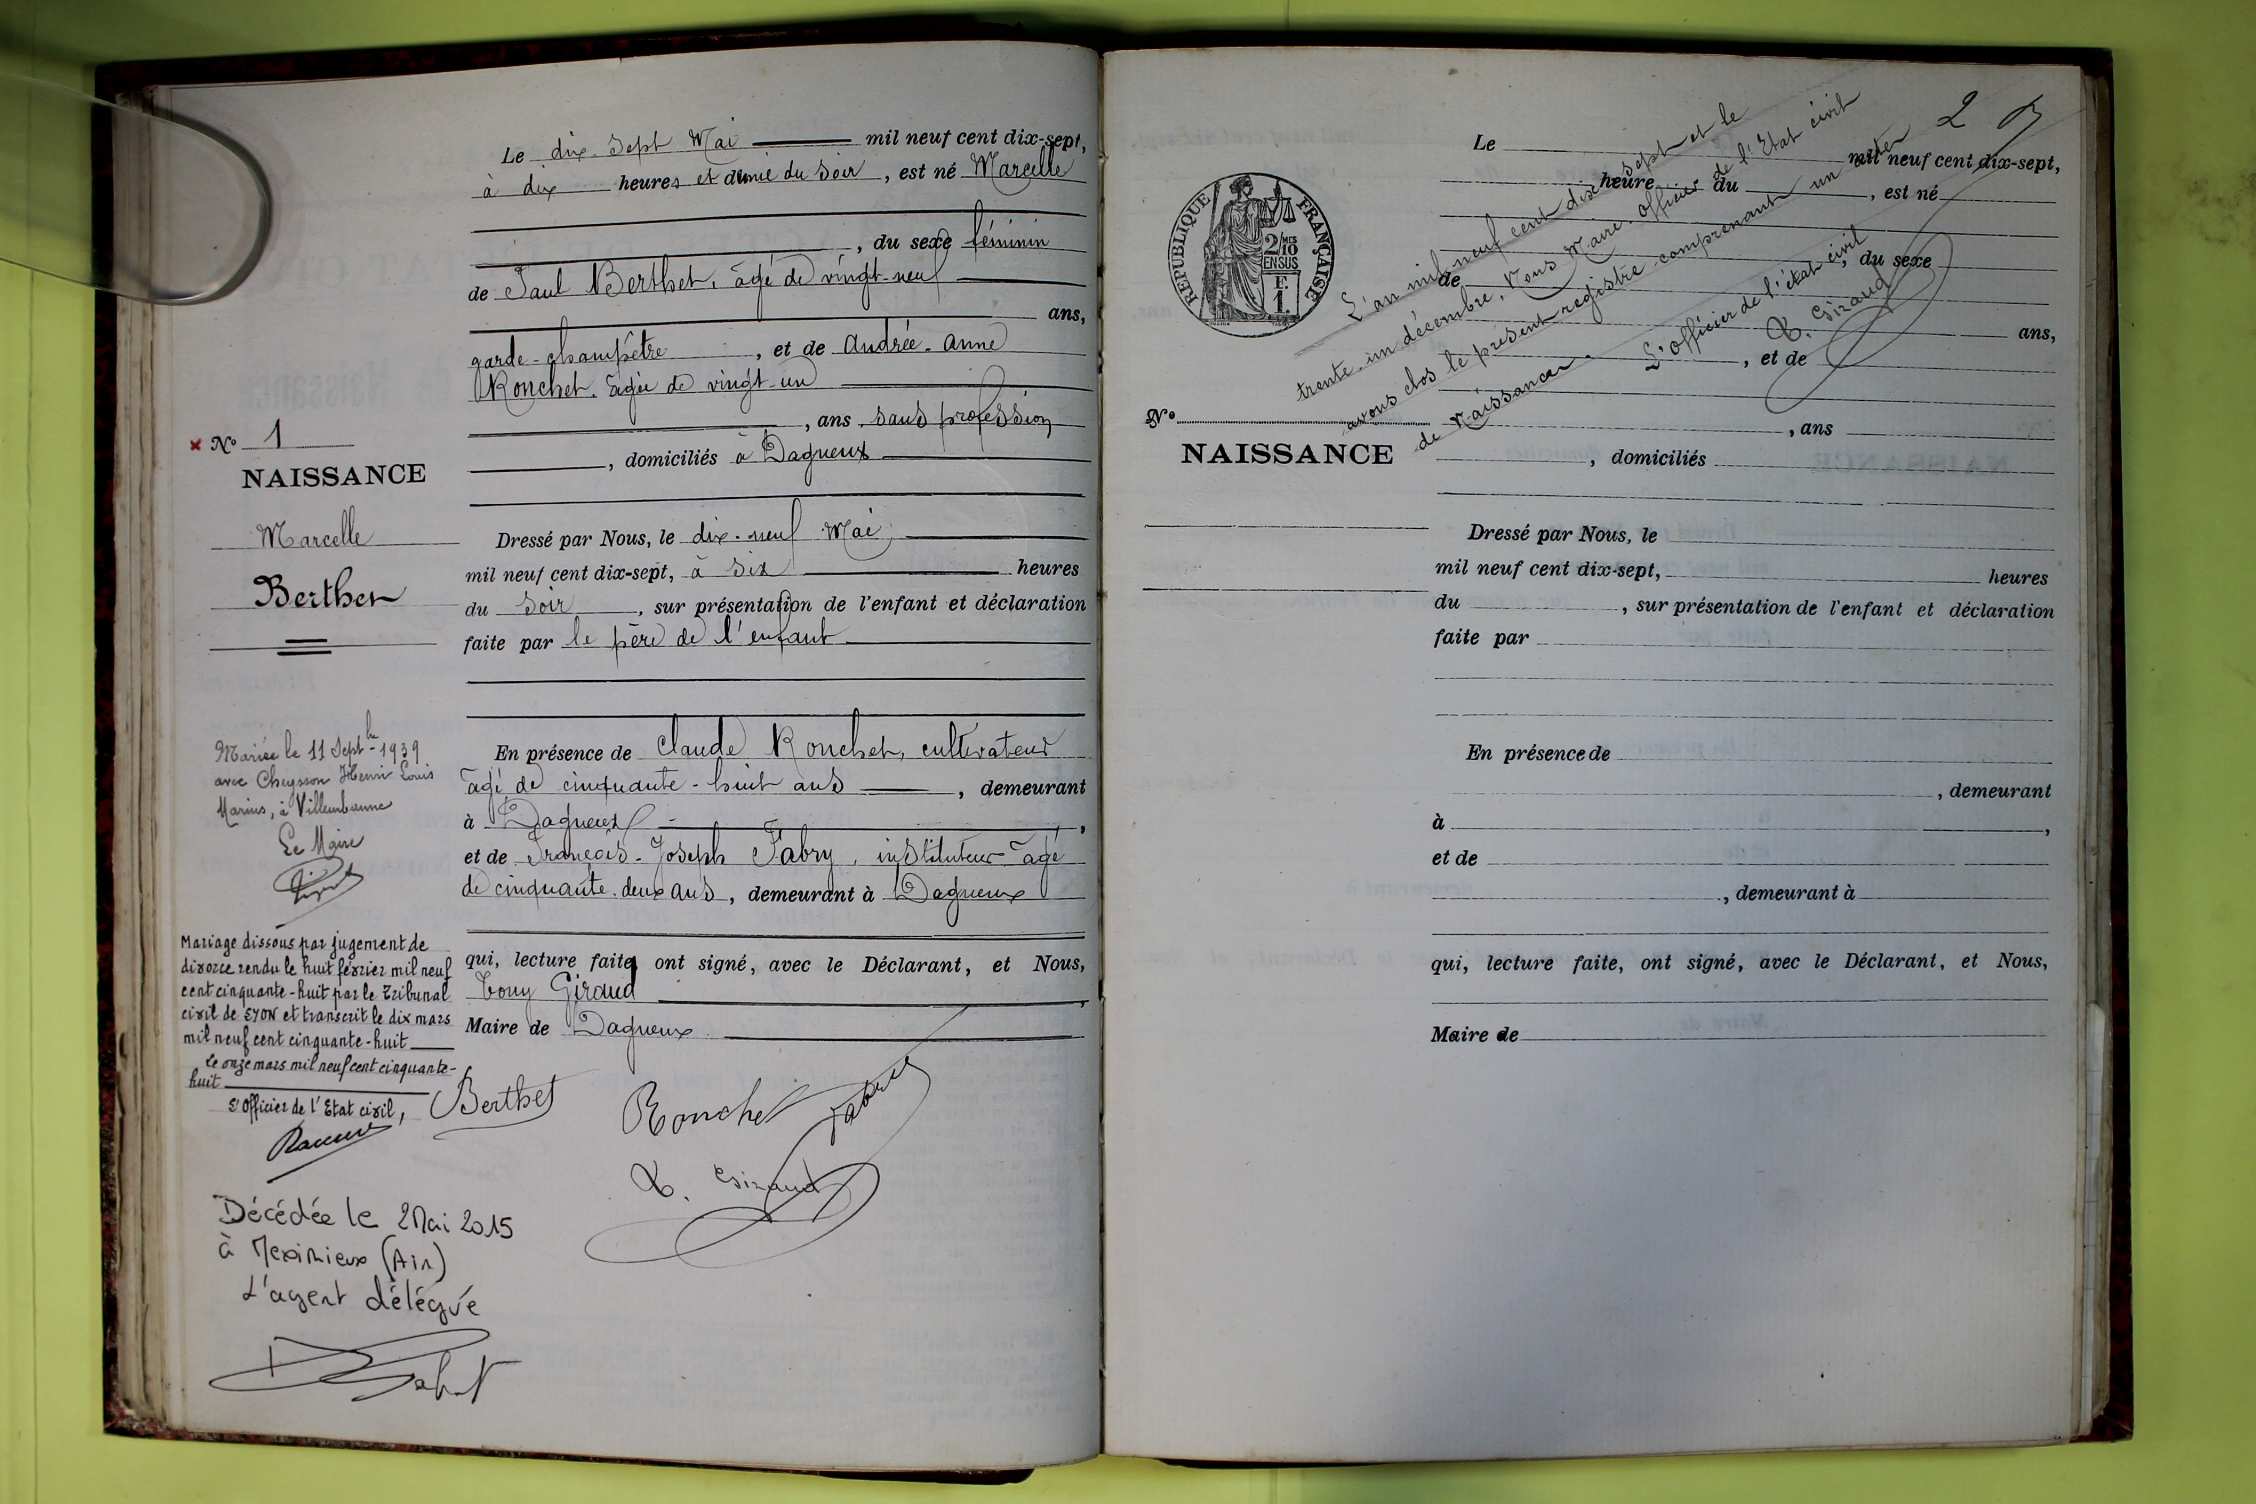 Le dix-sept Mai mil neuf cent dix-sept,
à dix heures et demie du soir, est né Marcelle
, du sexe féminin
de Paul Berthet, âgé de vingt-neuf
ans,
garde-champêtre, et de Andrée-Anne
Ronchet, âgée de vingt-un
, ans, sans profession
, domiciliés à Dagneux
× N° 1
NAISSANCE
Marcelle
Berthet
Dressé par Nous, le dix-neuf Mai,
mil neuf cent dix-sept, à six heures
du soir, sur présentation de l'enfant et déclaration
faite par le père de l'enfant
En présence de Claude Ronchet, cultivateur
âgé de cinquante-huit ans, demeurant
à Dagneux,
et de François-Joseph Fabry, instituteur âgé
de cinquante-deux ans, demeurant à Dagneux
qui, lecture faite, ont signé, avec le Déclarant, et Nous,
Tony Giraud,
Maire de Dagneux
Berthet
Ronchet
Fabry
T. Giraud
Mariée le 11 Septbre 1939
avec Cheysson Henri Louis
Marius, à Villeurbanne
Le Maire
Mariage dissous par jugement de
divorce rendu le huit février mil neuf
cent cinquante-huit par le Tribunal
civil de LYON et transcrit le dix mars
mil neuf cent cinquante-huit
le onze mars mil neuf cent cinquante-
huit
L'Officier de l'Etat civil,
Décédée le 2 Mai 2015
à Meximieux (Ain)
L'agent délégué
2
RÉPUBLIQUE FRANÇAISE
2/10 MES
EN SUS
E.
1.
L'an mil neuf cent dix-sept et le
trente-un décembre, Nous Maire, officier de l'Etat civil
avons clos le présent registre comprenant un acte
de Naissance.
L'officier de l'état civil
T. Giraud
Le mil neuf cent dix-sept,
heure du, est né
, du sexe
de
ans,
, et de
, ans
, domiciliés
N°
NAISSANCE
Dressé par Nous, le
mil neuf cent dix-sept, heures
du, sur présentation de l'enfant et déclaration
faite par
En présence de
, demeurant
à,
et de
, demeurant à
qui, lecture faite, ont signé, avec le Déclarant, et Nous,
Maire de